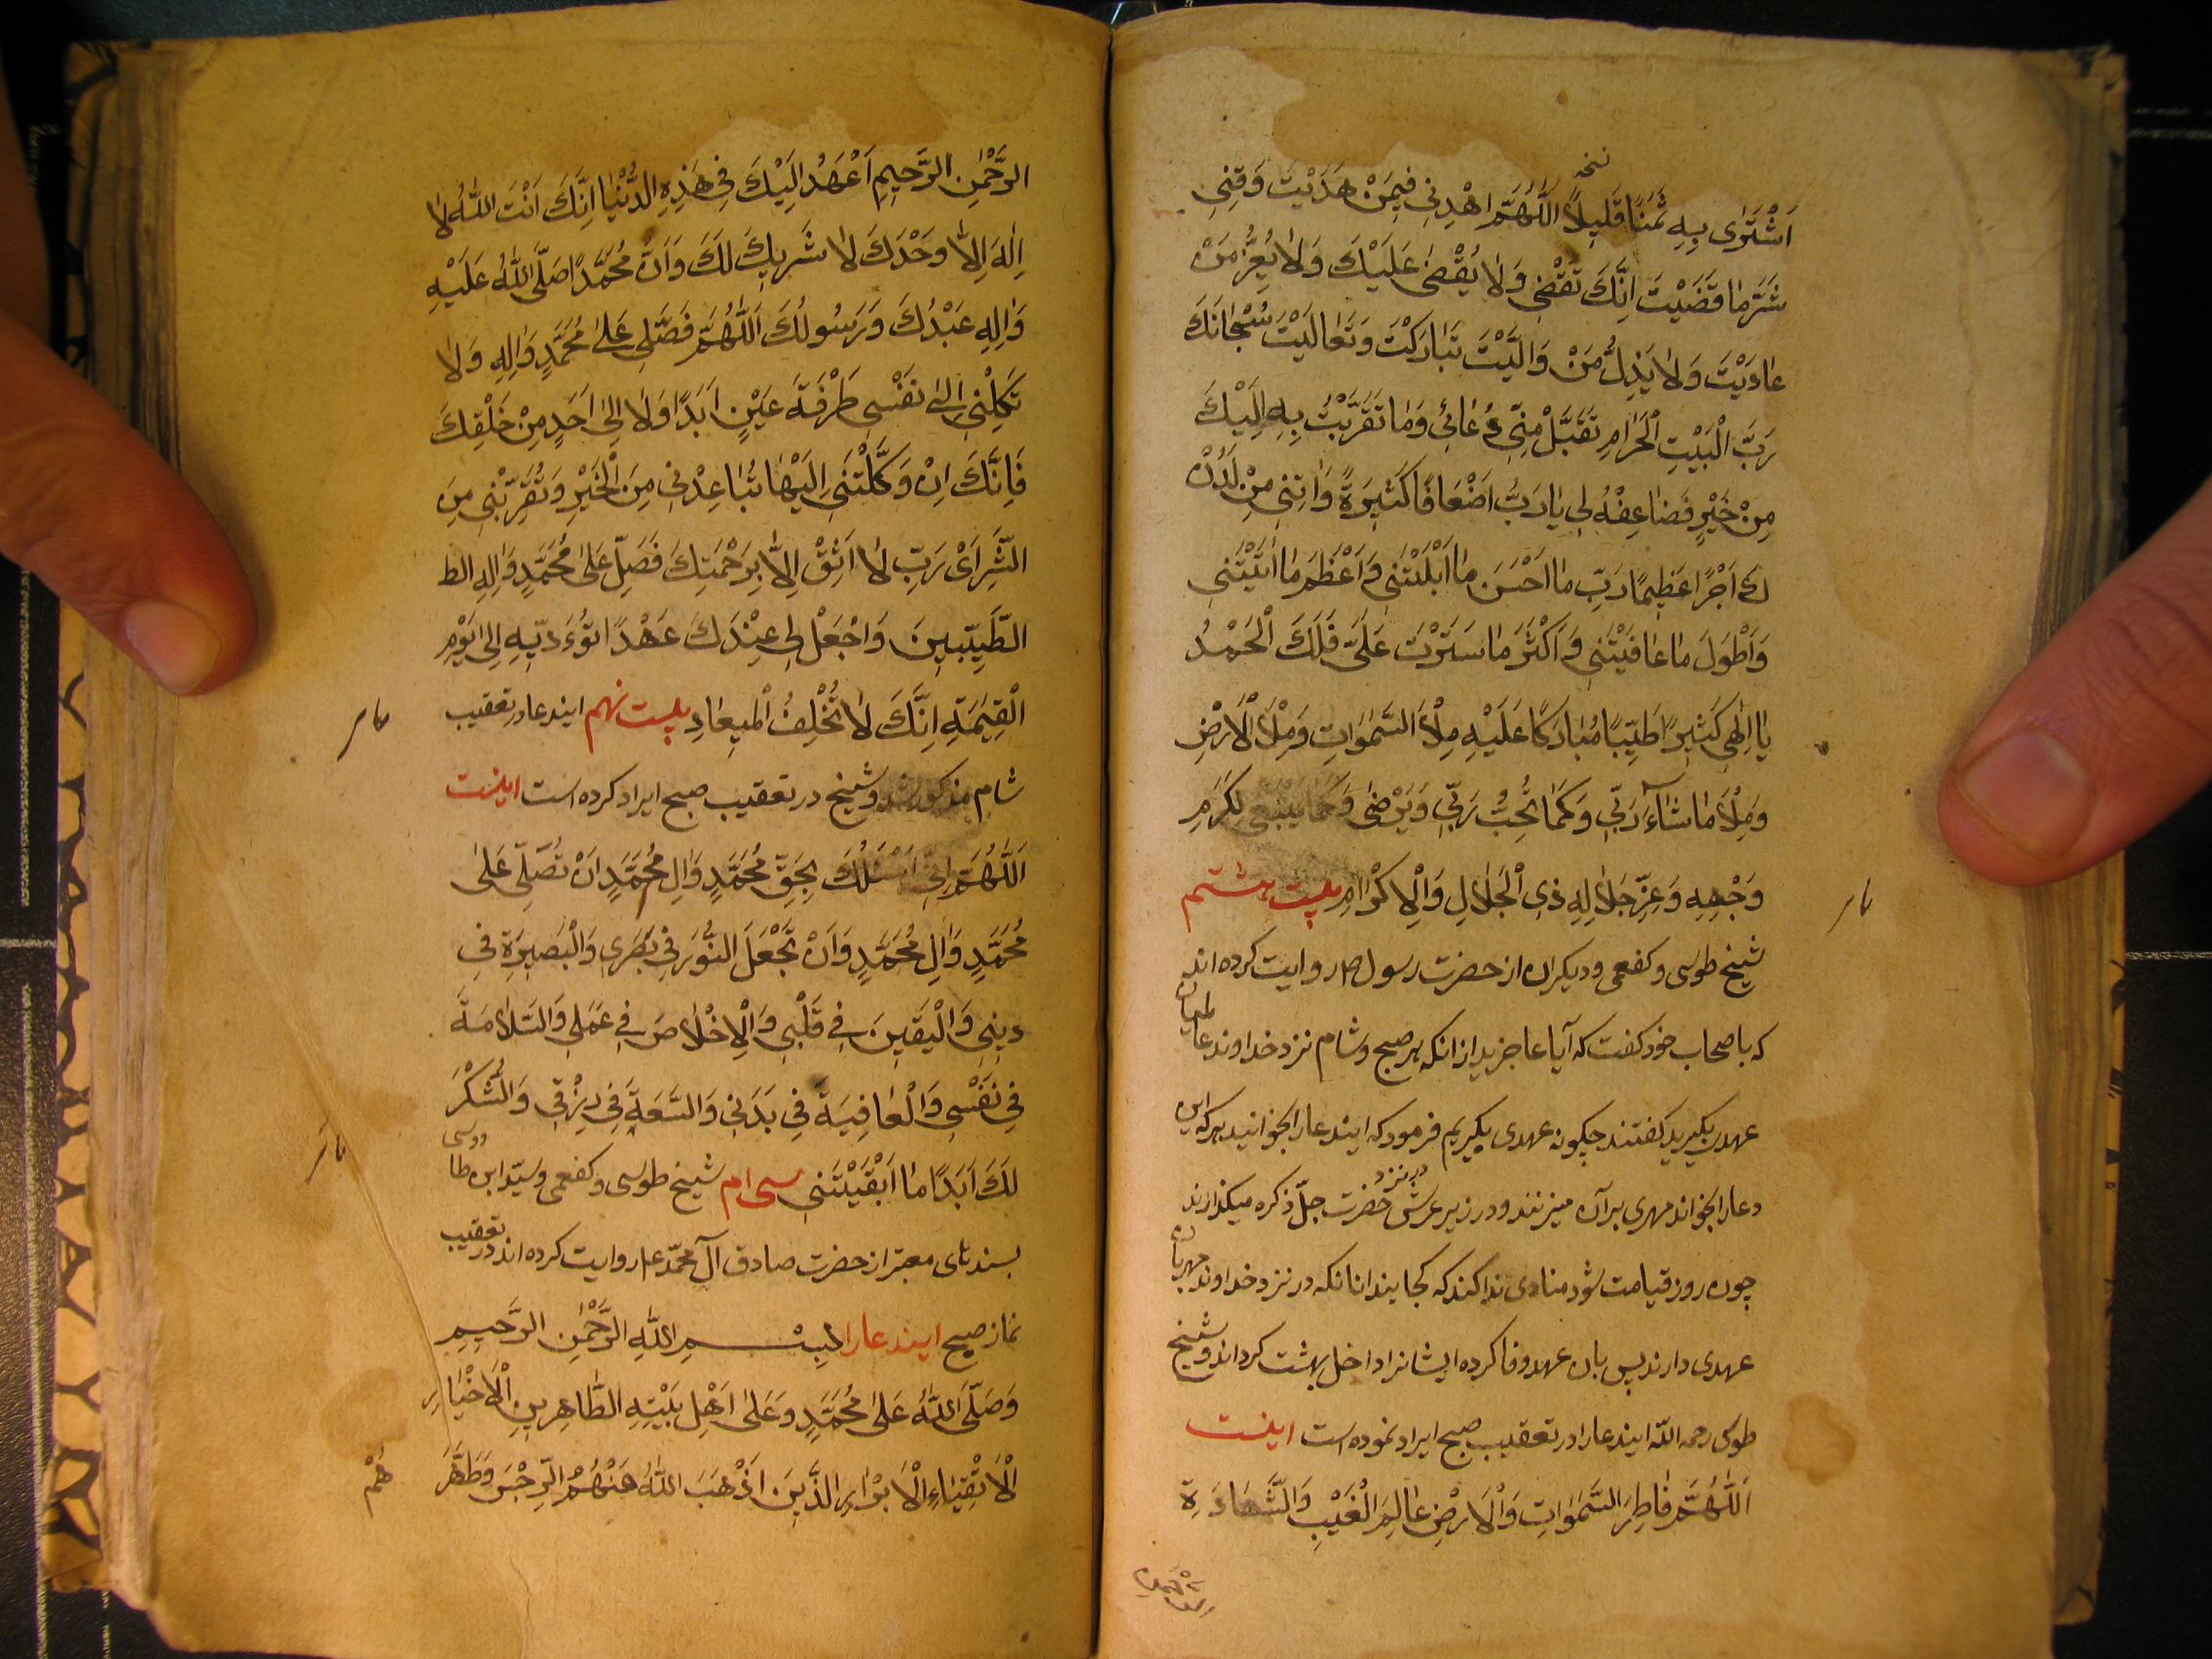 نسخه
اَشْتَرٰی بِهِ ثَمَنًا قَلیلًا اَللّٰهُمَّ اهْدِنی فیمَنْ هَدَیْتَ وَقِنی
شَرَّ مٰا قَضَیْتَ اِنَّكَ تَقْضی وَلٰا یُقْضیٰ عَلَیْكَ وَلٰا یُعِزُّ مَنْ
عٰادَیْتَ وَلٰا یَذِلُّ مَنْ وٰالَیْتَ تَبٰارَكْتَ وَتَعٰالَیْتَ سُبْحٰانَكَ
رَبَّ الْبَیْتِ الْحَرٰامِ تَقَبَّلْ مِنّی دُعٰائی وَمٰا تَقَرَّبْتُ بِهِ اِلَیْكَ
مِنْ خَیْرٍ فَضٰاعِفْهُ لی یٰا رَبُّ اَضْعٰافًا كَثیرَةً وَاٰتِنی مِنْ لَدُنْ
كَ اَجْرًا عَظیمًا رَبِّ مٰا اَحْسَنَ مٰا اَبْلَیْتَنی وَاَعْظَمَ مٰا اٰتَیْتَنی
وَاَطْوَلَ مٰا عٰافَیْتَنی وَاَكْثَرَ مٰا سَتَرْتَ عَلَیَّ فَلَكَ الْحَمْدُ
یٰا اِلٰهی كَثیرًا طَیِّبًا مُبٰارَكًا عَلَیْهِ مِلْاَ السَّمٰوٰاتِ وَمِلْاَ الْاَرْضِ
وَمِلْاَ مٰا شٰاءَ رَبّی وَكَمٰا یُحِبُّ رَبّی وَیَرْضیٰ وَكَمٰا یَنْبَغی لِكَرَمِ
وَجْهِهِ وَعِزِّ جَلٰالِهِ ذِی الْجَلٰالِ وَالْاِكْرٰامِ بیست هشتم
شیخ طوسی و كفعمی و دیكران از حضرت رسول ص روایت كرده اند
كه باصحاب خود كفت كه آیا عاجزید از انكه هر صبح و شام نزد خداوند عالمیان
عهدی بكیرید كفتند چكونه عهدی بكیریم فرمود كه ایندعا را بخوانید هر كه این
دعا را بخواند مهری بر آن میزنند و در زیر عرش حضرت جلّ ذكره میكذارند
چون روز قیامت شود منادی ندا كند كه كجایند انانكه در نزد خداوند مهربان
عهدی دارند پس بان عهد وفا كرده ایشانرا داخل بهشت كرداند و شیخ
طوسی رحمه اللّه ایندعا را در تعقیب صبح ایراد نموده است اینست
اَللّٰهُمَّ فٰاطِرَ السَّمٰوٰاتِ وَالْاَرْضِ عٰالِمَ الْغَیْبِ وَالشَّهٰادَةِ
الرَّحْمٰنِ الرَّحیمِ اَعْهَدُ اِلَیْكَ فی هٰذِهِ الدُّنْیٰا اِنَّكَ اَنْتَ اللّٰهُ لٰا
اِلٰهَ اِلّٰا وَحْدَكَ لٰا شَریكَ لَكَ وَاَنَّ مُحَمَّدًا صَلَّی اللّٰهُ عَلَیْهِ
وَاٰلِهِ عَبْدُكَ وَرَسُولُكَ اَللّٰهُمَّ فَصَّلِی عَلیٰ مُحَمَّدٍ وَاٰلِهِ وَلٰا
تَكِلْنی اِلیٰ نَفْسی طَرْفَةَ عَیْنٍ اَبَدًا وَلٰا اِلیٰ اَحَدٍ مِنْ خَلْقِكَ
فَاِنَّكَ اِنْ وَكَّلْتَنی اِلَیْهٰا تُبٰاعِدْنی مِنَ الْخَیْرِ وَتُقَرِّبْنی مِنَ
الشَّرِ اَیْ رَبِّ لٰا اَثِقْ اِلّٰا بِرَحْمَتِكَ فَصَلِّ عَلیٰ مُحَمَّدٍ وَاٰلِهِ الط
الطَّیِّبینَ وَاجْعَلْ لی عِنْدَكَ عَهْدًا تُؤَدّیهِ اِلیٰ یَوْمِ
الْقِیٰمَةِ اِنَّكَ لٰا تُخْلِفُ الْمیعٰادِ بیست نهم ایندعا در تعقیب
شام مذكور شد و شیخ در تعقیب صبح ایراد كرده است اینست
اَللّٰهُمَّ اِنّی اَسْئَلُكَ بِحَقِّ مُحَمَّدٍ وَاٰلِ مُحَمَّدٍ اَنْ تُصَلّی عَلیٰ
مُحَمَّدٍ وَاٰلِ مُحَمَّدٍ وَاَنْ تَجْعَلَ النُّورَ فی بَصَری وَالْبَصیرَةَ فی
دینی وَالْیَقینَ فی قَلْبی وَالْاِخْلٰاصَ فی عَمَلی وَالسَّلٰامَةَ
فی نَفْسی وَالْعٰافِیَةَ فی بَدَنی وَالسَّعَةَ فی رِزْقی وَالشُّكْرَ
لَكَ اَبَدًا مٰا اَبْقَیْتَنی سی ام شیخ طوسی و كفعمی و سیّد ابن طاووسی
بسندهای معتبر از حضرت صادق آل محمّد ع روایت كرده اند در تعقیب
نماز صبح ایندعا را بِسْمِ اللّٰهِ الرَّحْمٰنِ الرَّحیمِ
وَصَلَّی اللّٰهُ عَلیٰ مُحَمَّدٍ وَعَلیٰ اَهْلِ بَیْتِهِ الطّٰاهِرینِ الْاَخْیٰارِ
الْاَتْقِیٰاءِ الْاَبْرٰارِ الَّذینَ اَذْهَبَ اللّٰهُ عَنْهُمُ الرِّجْسَ وَطَهَّرَ
هُمْ